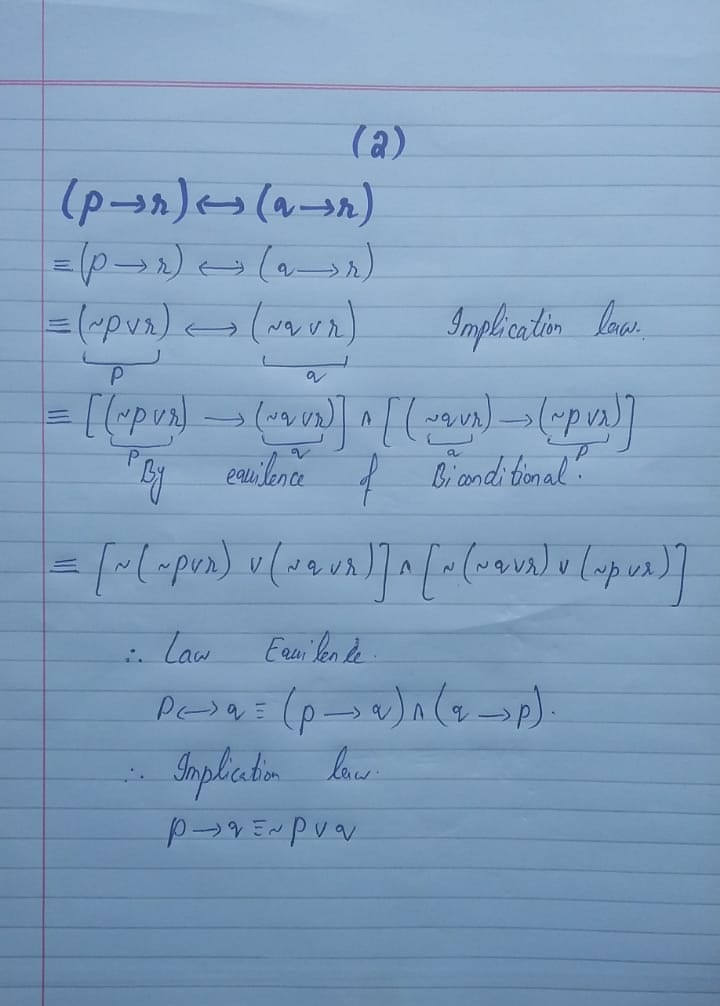 (2)
(p→r)↔(q→r)
≡(p→r) ↔ (q→r)
≡(~p∨r) ↔ (~q∨r) Implication law.
p q
≡ [(~p∨r) → (~q∨r)] ∧ [(~q∨r)→(~p∨r)]
p q q p
By equilence of Biconditional.
≡ [~(~p∨r) ∨ (~q∨r)] ∧ [~(~q∨r) ∨ (~p∨r)]
∴ Law Equilence.
p↔q ≡ (p→q)∧(q→p).
∴ Implication law.
p→q ≡ ~p∨q